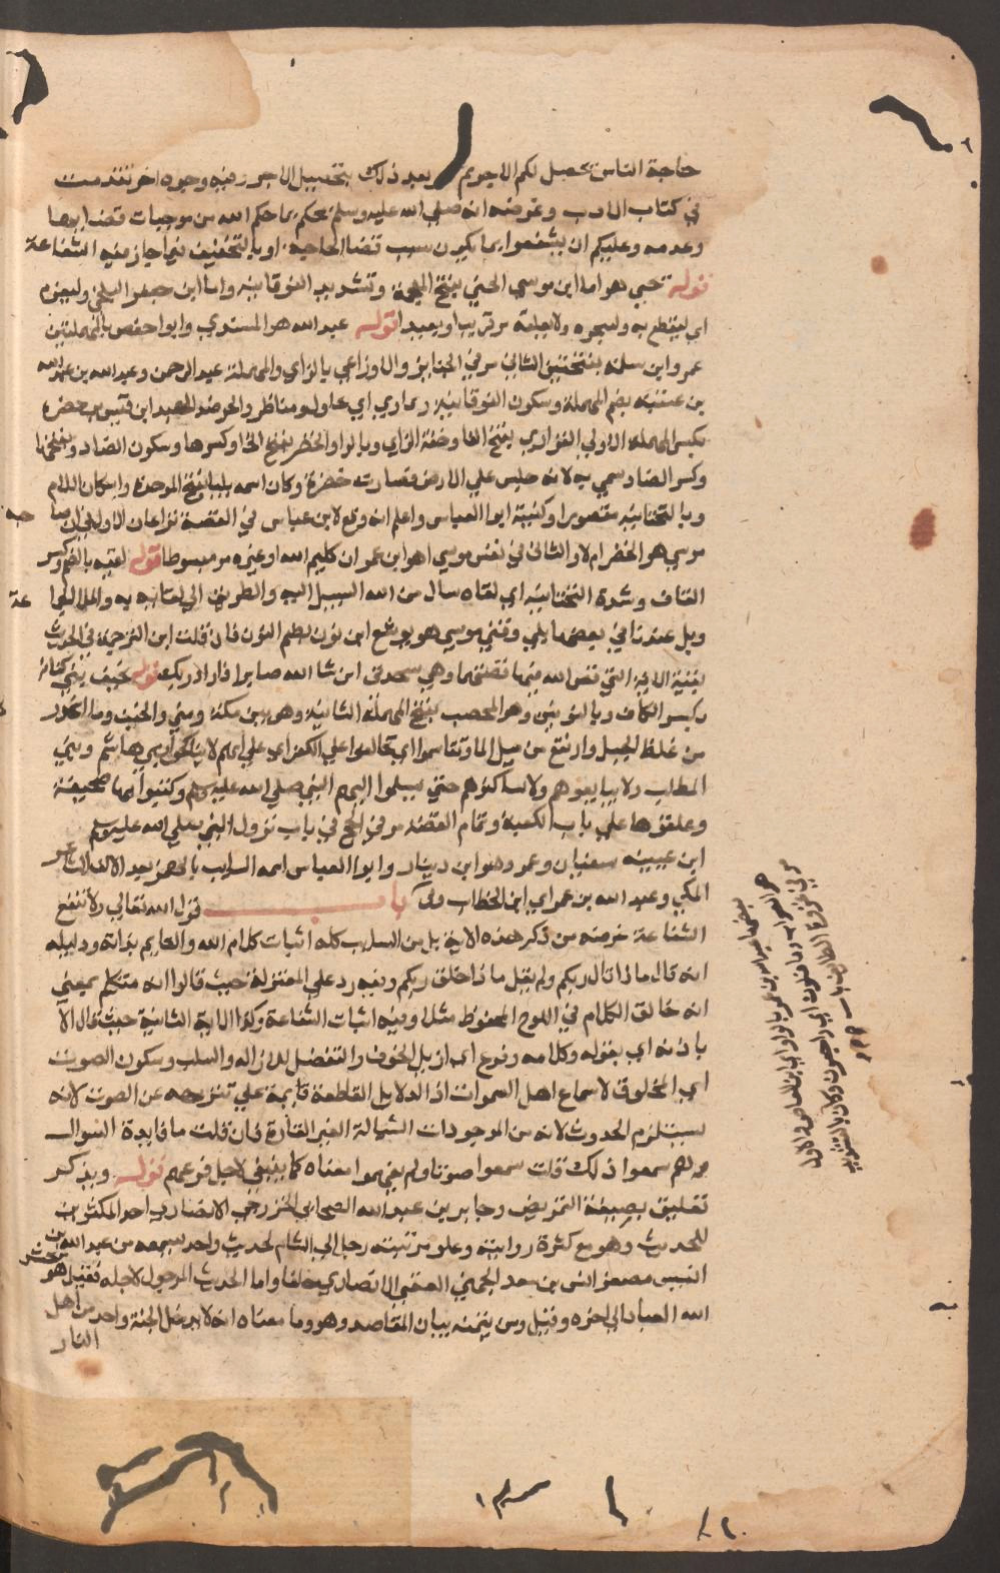 حاجة الناس يحصل لكم الاجر ثم بعد ذلك بتحصيل الاجر وفيه وجوه اخر تقدمت
في كتاب الادب وغرضه انه صلى الله عليه وسلم يحكم بما حكم الله من موجبات قضائها
وعدمه وعليكم ان يشفعوا بما يكون سبب قضا الحاجه او بالتخفيف فيما جاز فيه الشفاعة
قوله يحيى هو اما ابن موسى الختي بفتح المعجمة وتشديد الفوقانية واما ابن جعفر البلخي وليعزم
اي ليقطع به ولينجزه ولا يعلقه مر قريبا وبعيدا قوله عبد الله هو المسندي وابو حفص بالمهملتين
عمرو ابن سلمة بفتحتين الثاني مر في الجنايز والاوزاعي بالزاي والمهملة عبد الرحمن وعبيد الله بن عبد الله
بن عتبة بضم المهملة وسكون الفوقانية وتماري اي تجادل وتناظر والحر ضد العبد ابن قيس بن حصن
بكسر المهملة الاولى الفزاري بفتح الفا وخفة الزاي وبالراو الخضر بفتح الخا وكسرها وسكون الضاد وبفتحها
وكسر الضاد سمي به لانه جلس على الارض فصارت خضرة وكان اسمه بليا بفتح الموحدة واسكان اللام
وبالتحتانية مقصورا وكنيته ابو العباس واعلم انه وقع لابن عباس في القصة نزاعان الاول ان صاحبه
موسى هو الخضر ام لا والثاني في نفس موسى اهو ابن عمران كليم الله او غيره مر مبسوطا قوله لقيه بالضم وكسر
القاف وشدة التحتانية اي لقاه سال من الله السبيل اليه والطريق الى لقائه به والملا الجماعة
وبل عبدنا في بعضها بلى وفتى موسى هو يوشع ابن نون بضم النون فان قلت اين الترجمة في الحديث
بقية الاية التي قص الله فيها قصتهما وهي ستجدني ان شا الله صابرا او اراد ربك قوله بخيف بني كنانة
بكسر الكاف وبالنونين وهو المحصب بفتح المهملة الثانية وهو بين مكة ومنى والخيف وما انحدر
من غلظ الجبل وارتفع عن مسيل الما وتقاسموا اي تحالفوا على الكفر اي على انهم لا يناكحوا بني هاشم وبني
المطلب ولا يبايعوهم ولا يساكنوهم حتى يسلموا اليهم النبي صلى الله عليه وسلم وكتبوا بها صحيفة
وعلقوها على باب الكعبة وتمام القصة مر في الحج في باب نزول النبي صلى الله عليه وسلم
ابن عيينه سفيان وعمرو هو ابن دينار وابو العباس اسمه السايب بالهمز بعد الالف الشاعر
المكي وعبد الله بن عمر اي ابن الخطاب باب قول الله تعالى ولا تنفع
الشفاعة غرضه من ذكر هذه الاية بل من الباب كله اثبات كلام الله والقايم بذاته ودليله
انه قال ماذا قال ربكم ولم يقل ماذا خلق ربكم وفيه رد على المعتزلة حيث قالوا انه متكلم بمعنى
انه خالق الكلام في اللوح المحفوظ مثلا وفيه اثبات الشفاعة وكذا الاية الثانية حيث قال الا
باذنه اي بقوله وكلامه وفزع اي ازيل الخوف والتفعيل للازاله والسلب وسكون الصوت
اي المخلوق لاسماع اهل السموات اذ الدلايل القاطعة قايمة على تنزيهه عن الصوت لانه
يستلزم الحدوث لانه من الموجودات السيالة الغير القارة فان قلت ما فايدة السوال
وهم سمعوا ذلك قلت سمعوا صوتا ولم يفهموا معناه كما ينبغي لاجل فزعهم قوله ويذكر
تعليق بصيغة التمريض وجابر بن عبد الله الصحابي الخزرجي الانصاري احد المكثرين
للحديث وهو مع كثرة روايته وعلو مرتبته رحل الى الشام لحديث واحد سمعه من عبد الله بن
انيس مصغر انس بن سعد الجهني العقبي الانصاري حلفا واما الحديث المرحول لاجله فقيل هو يحشر
الله العباد الى اخره وقيل ومن تتمته بيان المقاصد وهو وما معناه انه لا يدخل الجنة واحد من اهل
النار